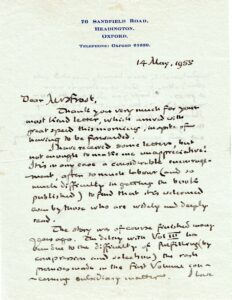 76 SANDFIELD ROAD,
HEADINGTON,
OXFORD.
TELEPHONE: OXFORD 61639.
14 May, 1955
Dear Mr Frost,
Thank you very much for your
most kind letter, which arrived with
great speed this morning, in spite of
having to be forwarded.
I have received some letters, but
not enough to make me unappreciative.
This in any case is considerable encourage-
ment, after so much labour (and so
much difficulty in getting the book
published) to find that it is welcomed
even by those who are widely and deeply
read.
The story was of course finished many
years ago. The delay with Vol III has
been due to the difficulty of fulfilling (by
compression and selection) the rash
promises made in the First Volume con-
cerning subsidiary matters. I have